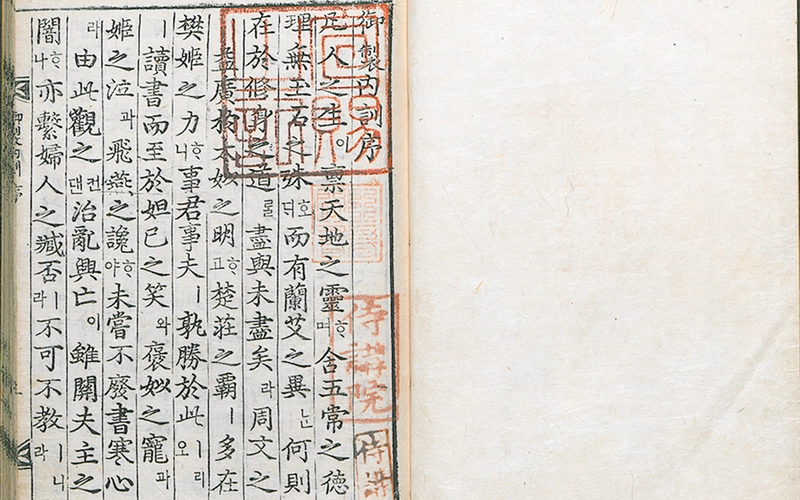 御製內訓序
凡人之生이稟天地之靈ᄒᆞ며含五常之德
理無玉石之殊호ᄃᆡ而有蘭艾之異ᄂᆞᆫ何則
在於修身之道ᄅᆞᆯ盡與未盡矣라周文之
益廣於太姒之明ᄒᆞ고楚莊之霸ㅣ多在
樊姬之力ᄒᆞ니事君事夫ㅣ孰勝於此ㅣ리오
ㅣ讀書而至於妲己之笑와褒姒之寵과
姬之泣과飛燕之讒ᄒᆞ야未嘗不廢書寒心
라由此觀之컨댄治亂興亡이雖關夫主之
闇ᄒᆞ나亦繫婦人之臧否ㅣ라不可不敎ㅣ니라
侍講院
侍講